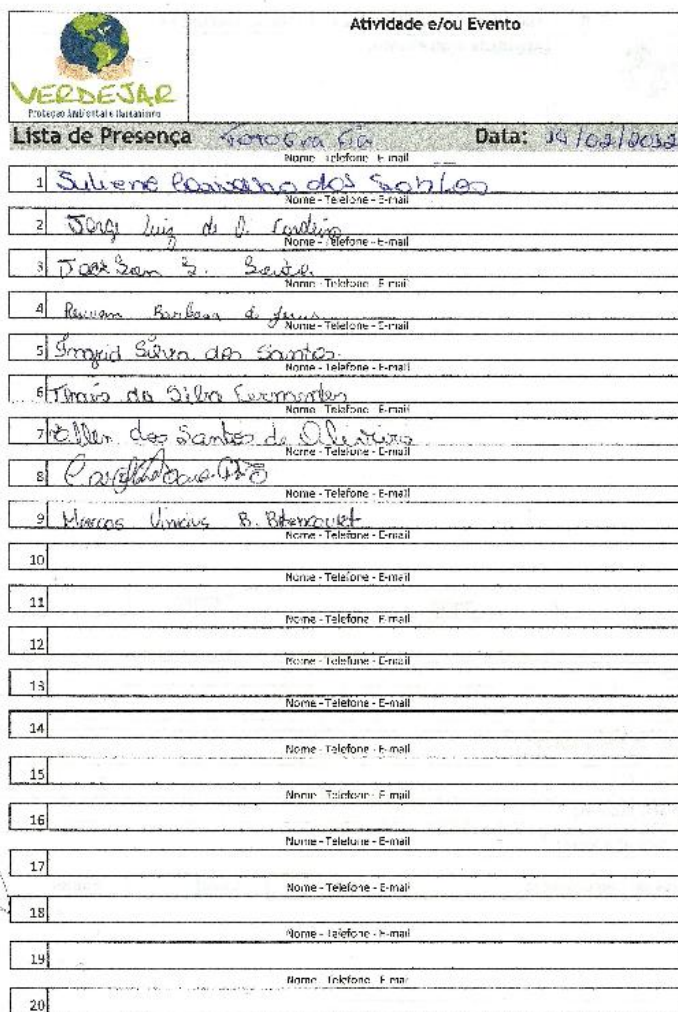 Atividade e/ou Evento
VERDEJAR
Proteção Ambiental e Humanismo
Lista de Presença Fotografia Data: 14/02/2012
Nome - Telefone - E-mail
1 Suliene dos Santos
Nome - Telefone - E-mail
2 Jorge Luiz de O. Cordeiro
Nome - Telefone - E-mail
3 Jackson S.
Nome - Telefone - E-mail
4 Renan Barbosa de Jesus
Nome - Telefone - E-mail
5 Ingrid Silva dos Santos
Nome - Telefone - E-mail
6 Thais da Silva Fernandes
Nome - Telefone - E-mail
7 Ellen dos Santos de Oliveira
Nome - Telefone - E-mail
8
Nome - Telefone - E-mail
9 Marcos Vinicius B. Bitencourt
Nome - Telefone - E-mail
10
Nome - Telefone - E-mail
11
Nome - Telefone - E-mail
12
Nome - Telefone - E-mail
13
Nome - Telefone - E-mail
14
Nome - Telefone - E-mail
15
Nome - Telefone - E-mail
16
Nome - Telefone - E-mail
17
Nome - Telefone - E-mail
18
Nome - Telefone - E-mail
19
Nome - Telefone - E-mail
20